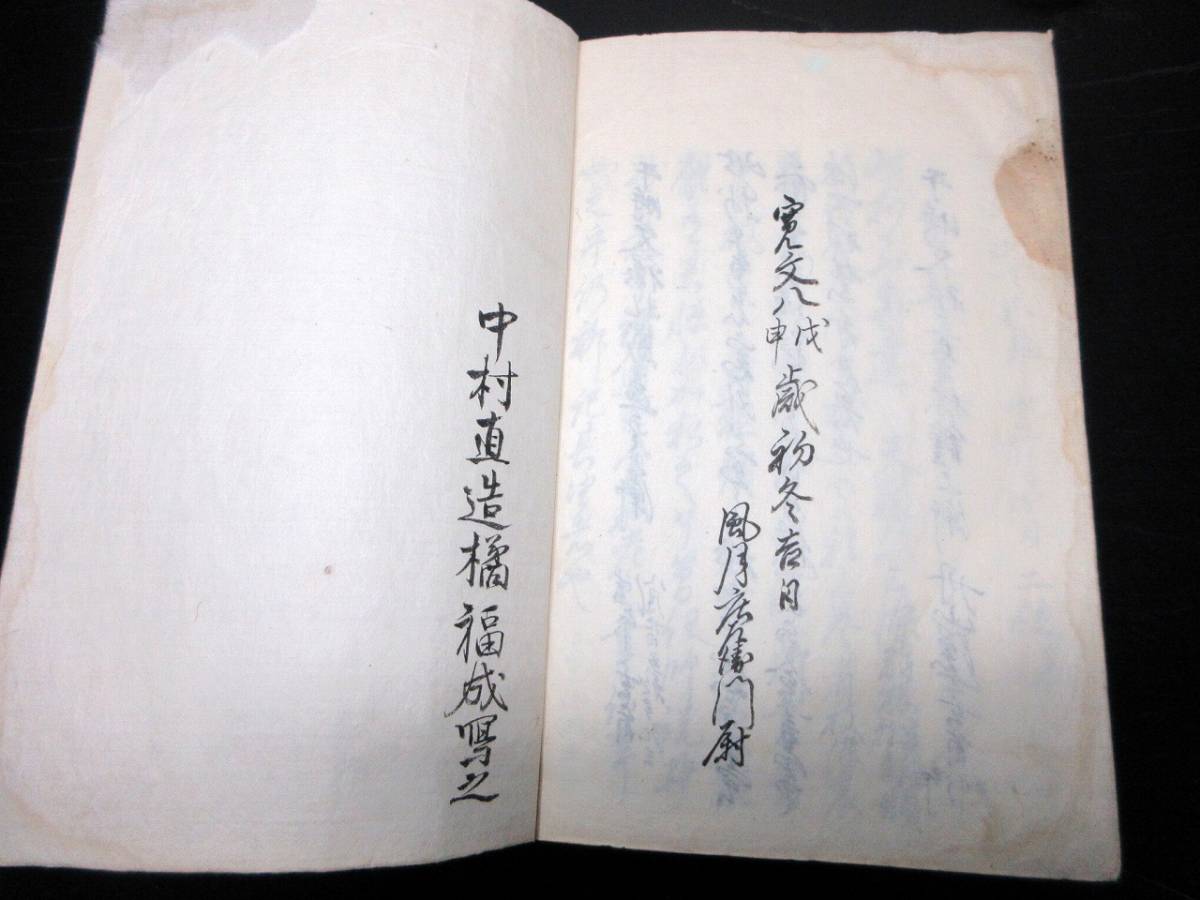 寛文八戊申歳初冬吉日
風月庄左衛門尉
中村直造橘福成写之